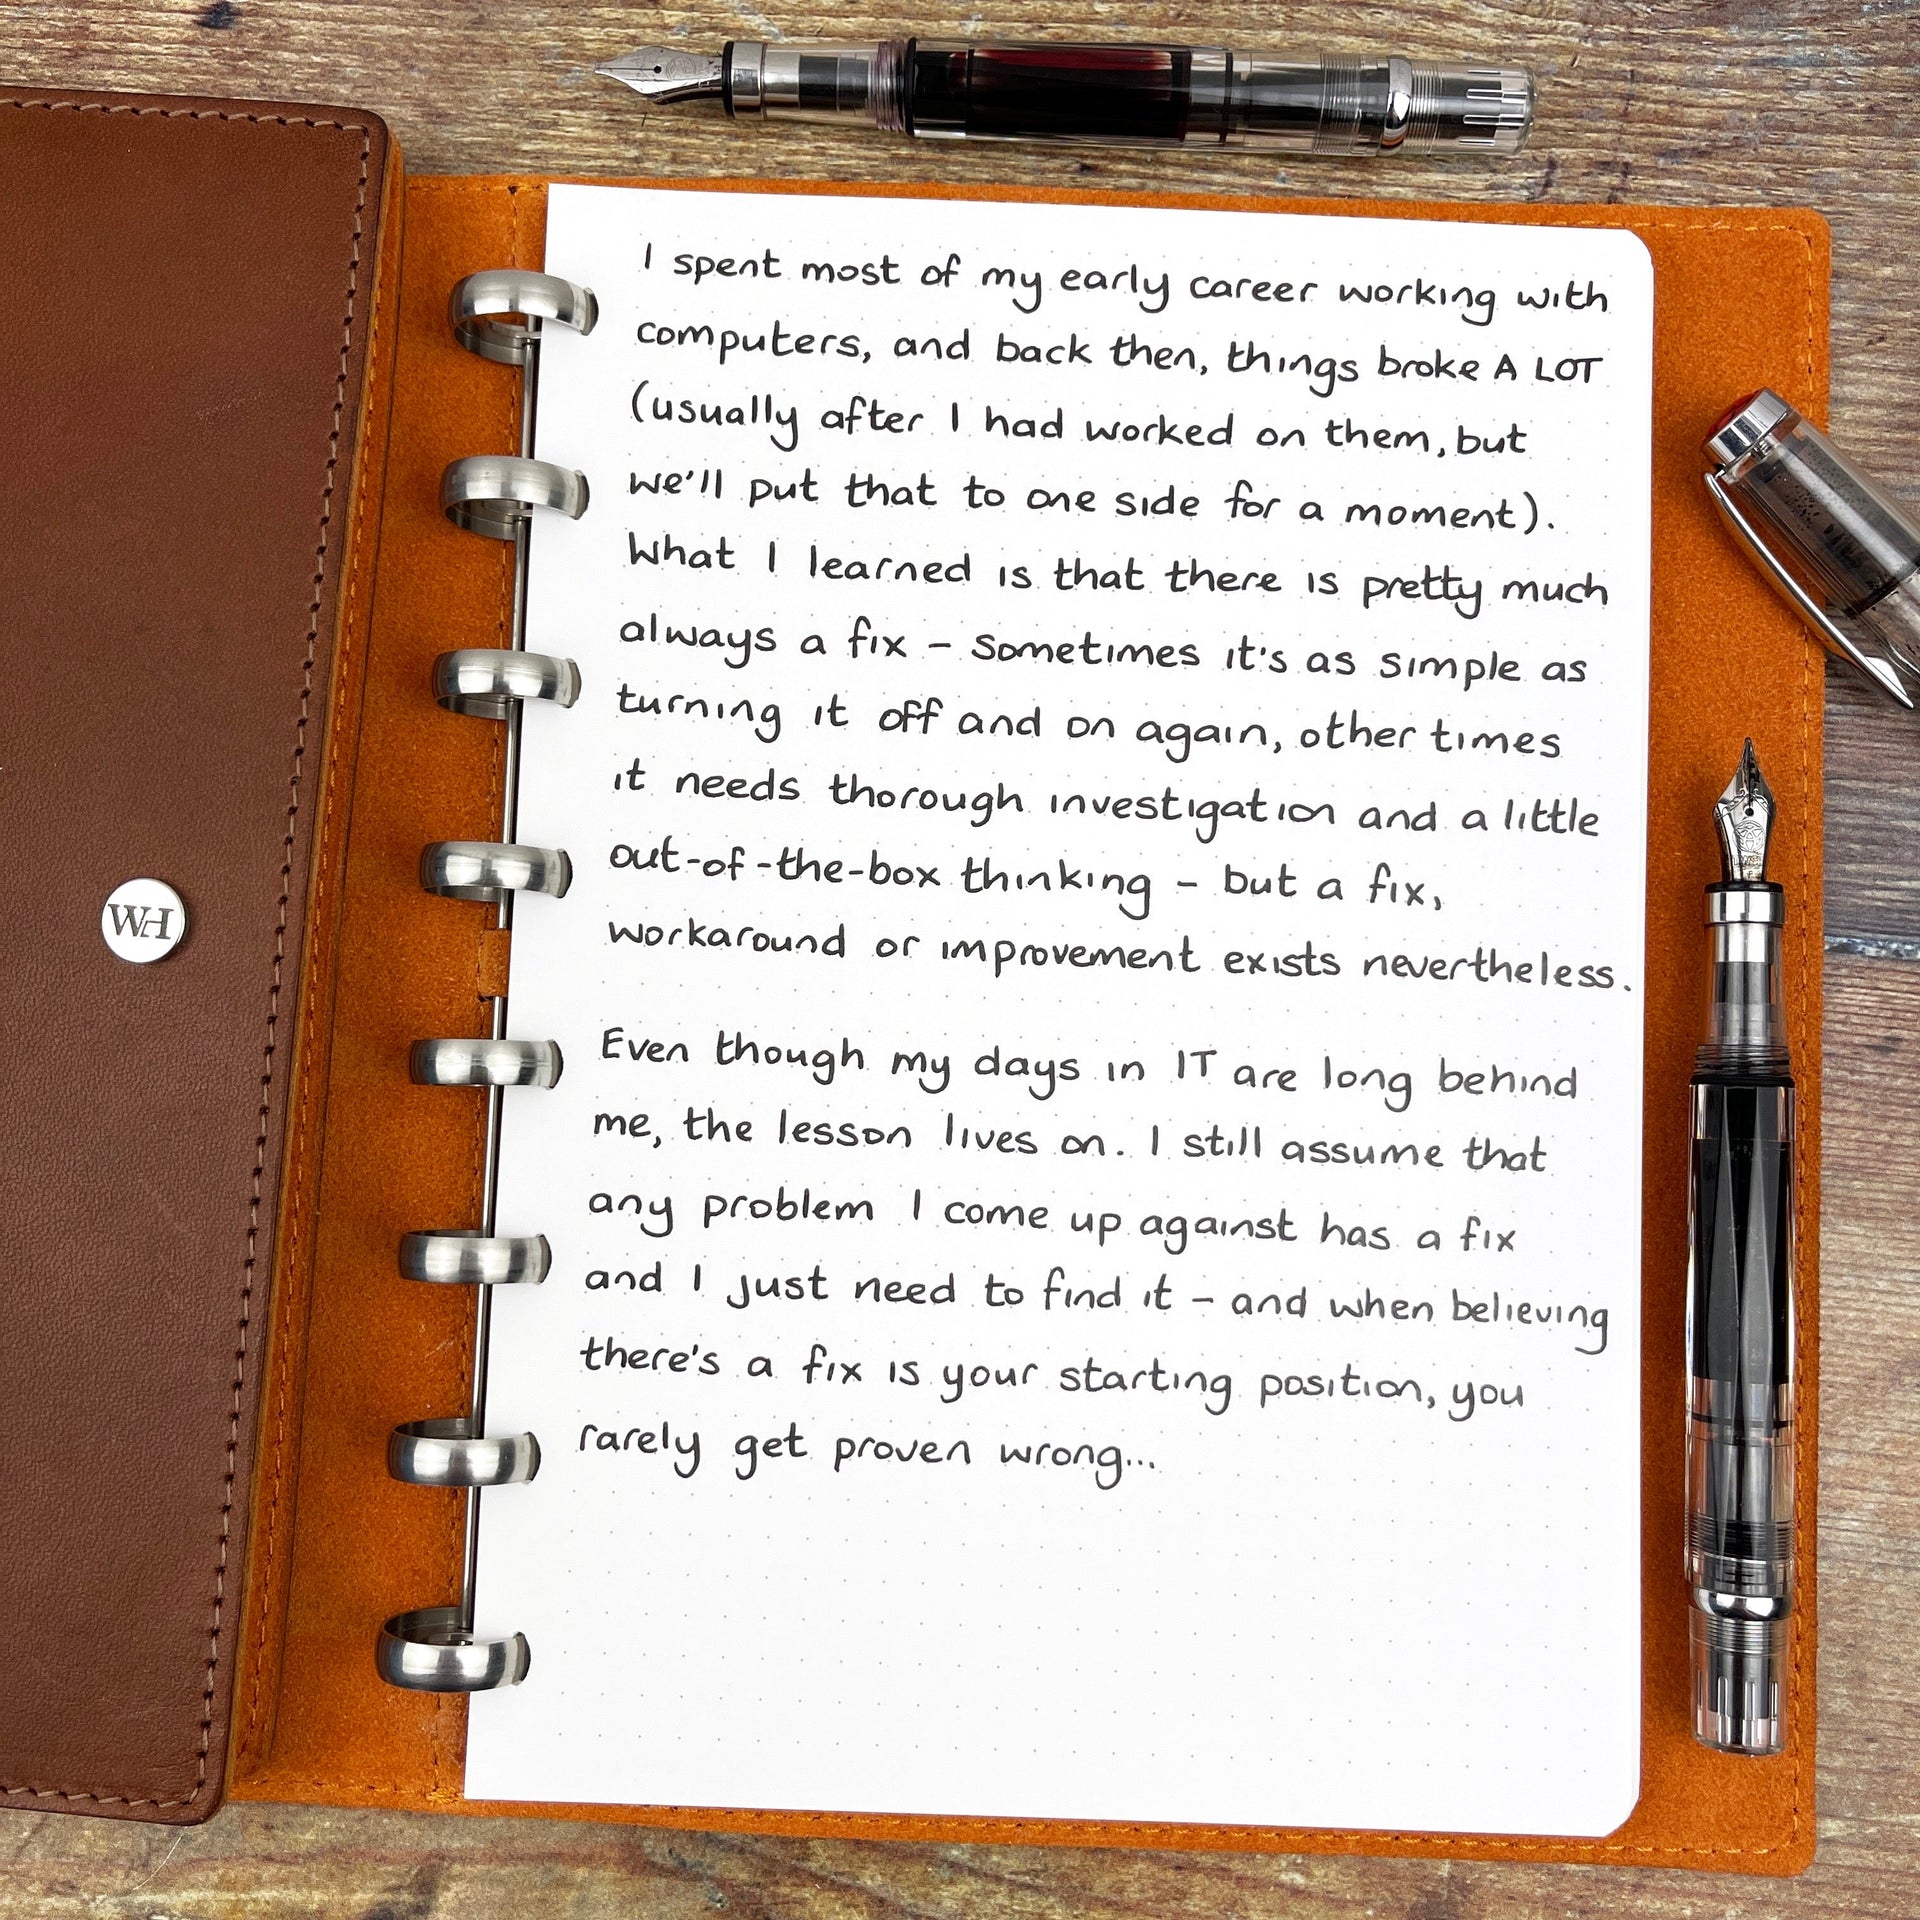 I spent most of my early career working with
computers, and back then, things broke A LOT
(usually after I had worked on them, but
we'll put that to one side for a moment).
What I learned is that there is pretty much
always a fix – sometimes it's as simple as
turning it off and on again, other times
it needs thorough investigation and a little
out-of-the-box thinking – but a fix,
workaround or improvement exists nevertheless.
Even though my days in IT are long behind
me, the lesson lives on. I still assume that
any problem I come up against has a fix
and I just need to find it – and when believing
there's a fix is your starting position, you
rarely get proven wrong...
WH